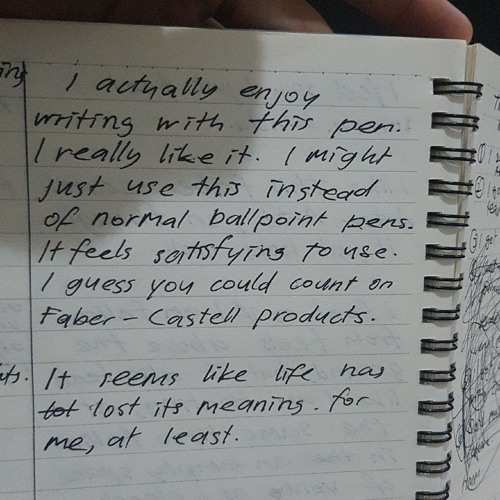 I actually enjoy
writing with this pen.
I really like it. I might
just use this instead
of normal ballpoint pens.
It feels satisfying to use.
I guess you could count on
Faber-Castell products.
It seems like life has
lost its meaning. for
me, at least.